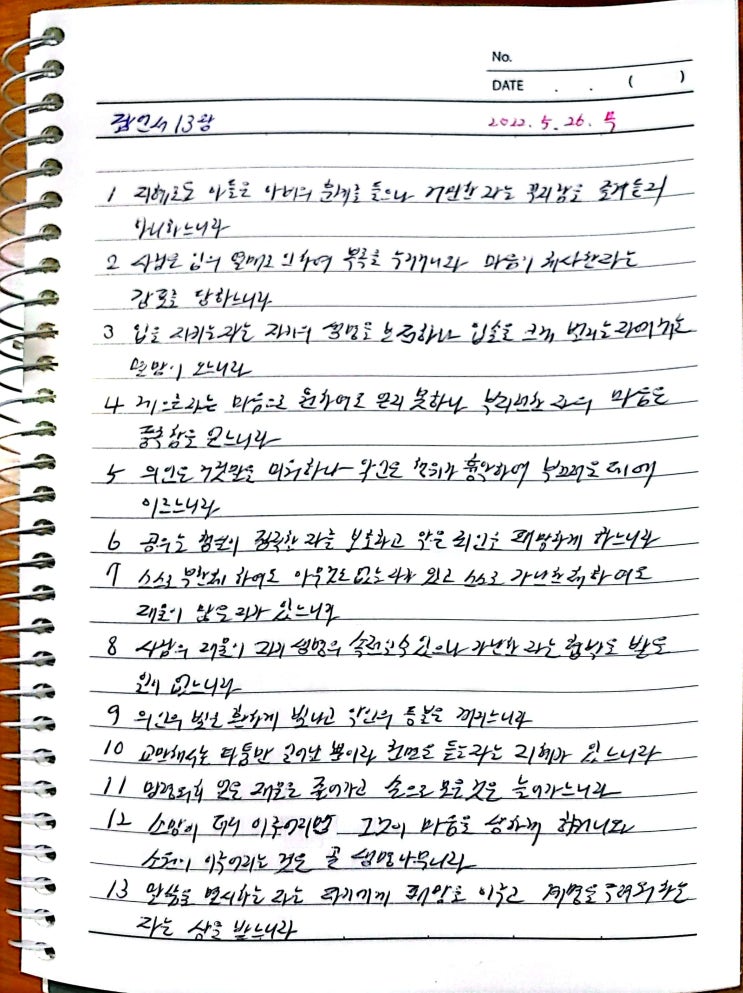 No.
DATE . . ( )
잠언서 13장 2022. 5. 26. 목
1 지혜로운 아들은 아비의 훈계를 들으나 거만한 자는 꾸지람을 즐겨 듣지
아니하느니라
2 사람은 입의 열매로 인하여 복록을 누리거니와 마음이 궤사한 자는
강포를 당하느니라
3 입을 지키는 자는 자기의 생명을 보전하나 입술을 크게 벌리는 자에게는
멸망이 오느니라
4 게으른 자는 마음으로 원하여도 얻지 못하나 부지런한 자의 마음은
풍족함을 얻느니라
5 의인은 거짓말을 미워하나 악인은 행위가 흉악하여 부끄러운 데에
이르느니라
6 공의는 행실이 정직한 자를 보호하고 악은 죄인을 패망하게 하느니라
7 스스로 부한체 하여도 아무것도 없는 자가 있고 스스로 가난한체 하여도
재물이 많은 자가 있느니라
8 사람의 재물이 자기 생명의 속전일 수 있으나 가난한 자는 협박을 받을
일이 없느니라
9 의인의 빛은 환하게 빛나고 악인의 등불은 꺼지느니라
10 교만에서는 다툼만 일어날 뿐이라 권면을 듣는 자는 지혜가 있느니라
11 망령되이 얻은 재물은 줄어가고 손으로 모은 것은 늘어가느니라
12 소망이 더디 이루어지면 그것이 마음을 상하게 하거니와
소원이 이루어지는 것은 곧 생명나무니라
13 말씀을 멸시하는 자는 자기에게 패망을 이루고 계명을 두려워하는
자는 상을 받느니라